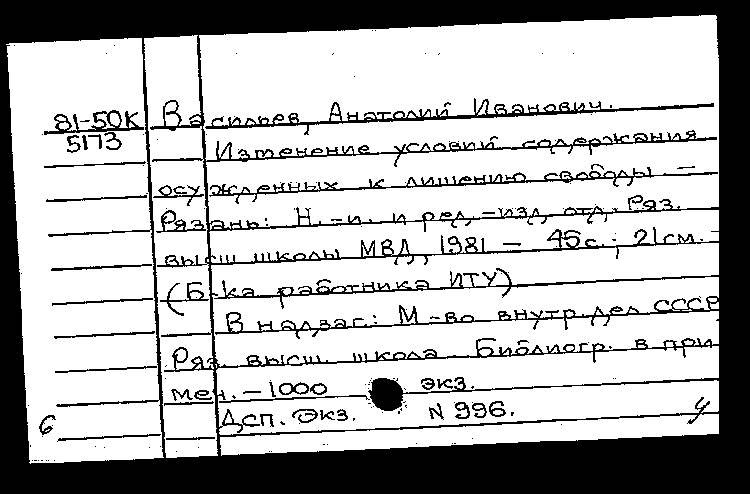 81-50К
5173
Васильев, Анатолий Иванович.
Изменение условий содержания
осужденных к лишению свободы —
Рязань: Н.-и. и ред.-изд. отд. Ряз.
высш школы МВД, 1981 — 45с.; 21см. —
(Б-ка работника ИТУ)
В надзаг.: М-во внутр. дел СССР,
Ряз. высш. школа Библиогр. в при
меч. — 1000 экз.
Дсп. Экз. N 996.
6